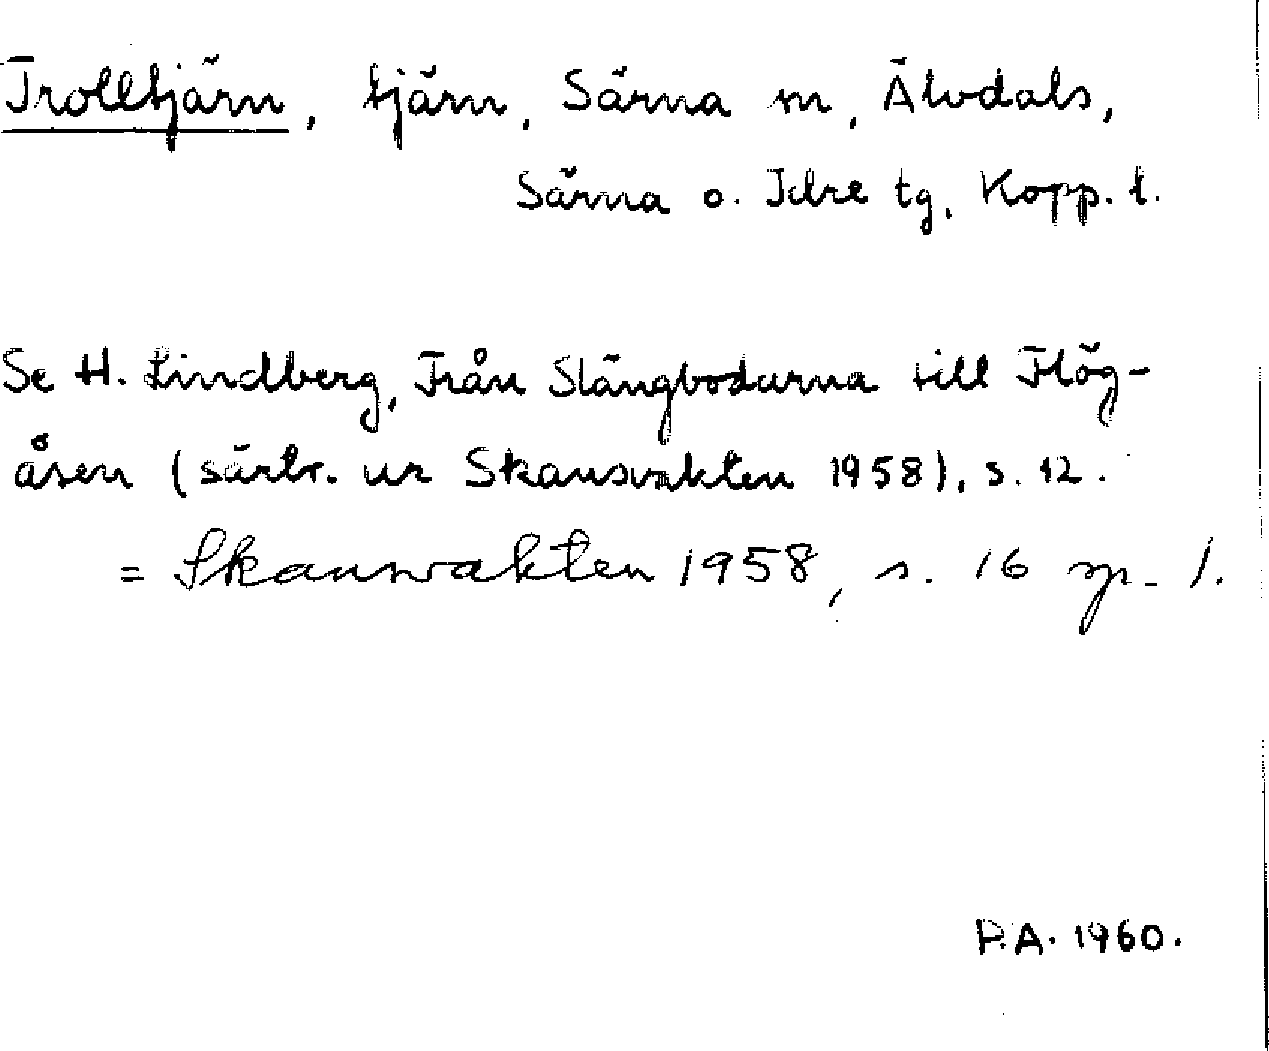 Trolltjärn, tjärn, Särna sn, Älvdals,
Särna o. Idre tg, Kopp. l.
Se H. Lindberg, Från Slängbodarna till Flög-
åsen (särtr. ur Skansvakten 1958), s. 12.
= Skansvakten 1958, s. 16 sp. 1.
P.A. 1960.